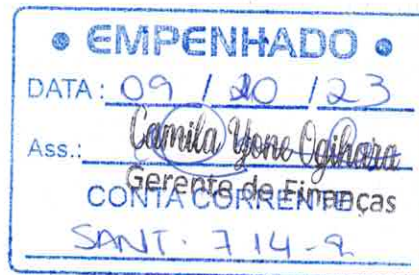 • EMPENHADO •
DATA: 09 / 20 / 23
Ass.: Camila Yone Ogihara
Gerente de Finanças
CONTA CORRENTE
SANT. 714-9